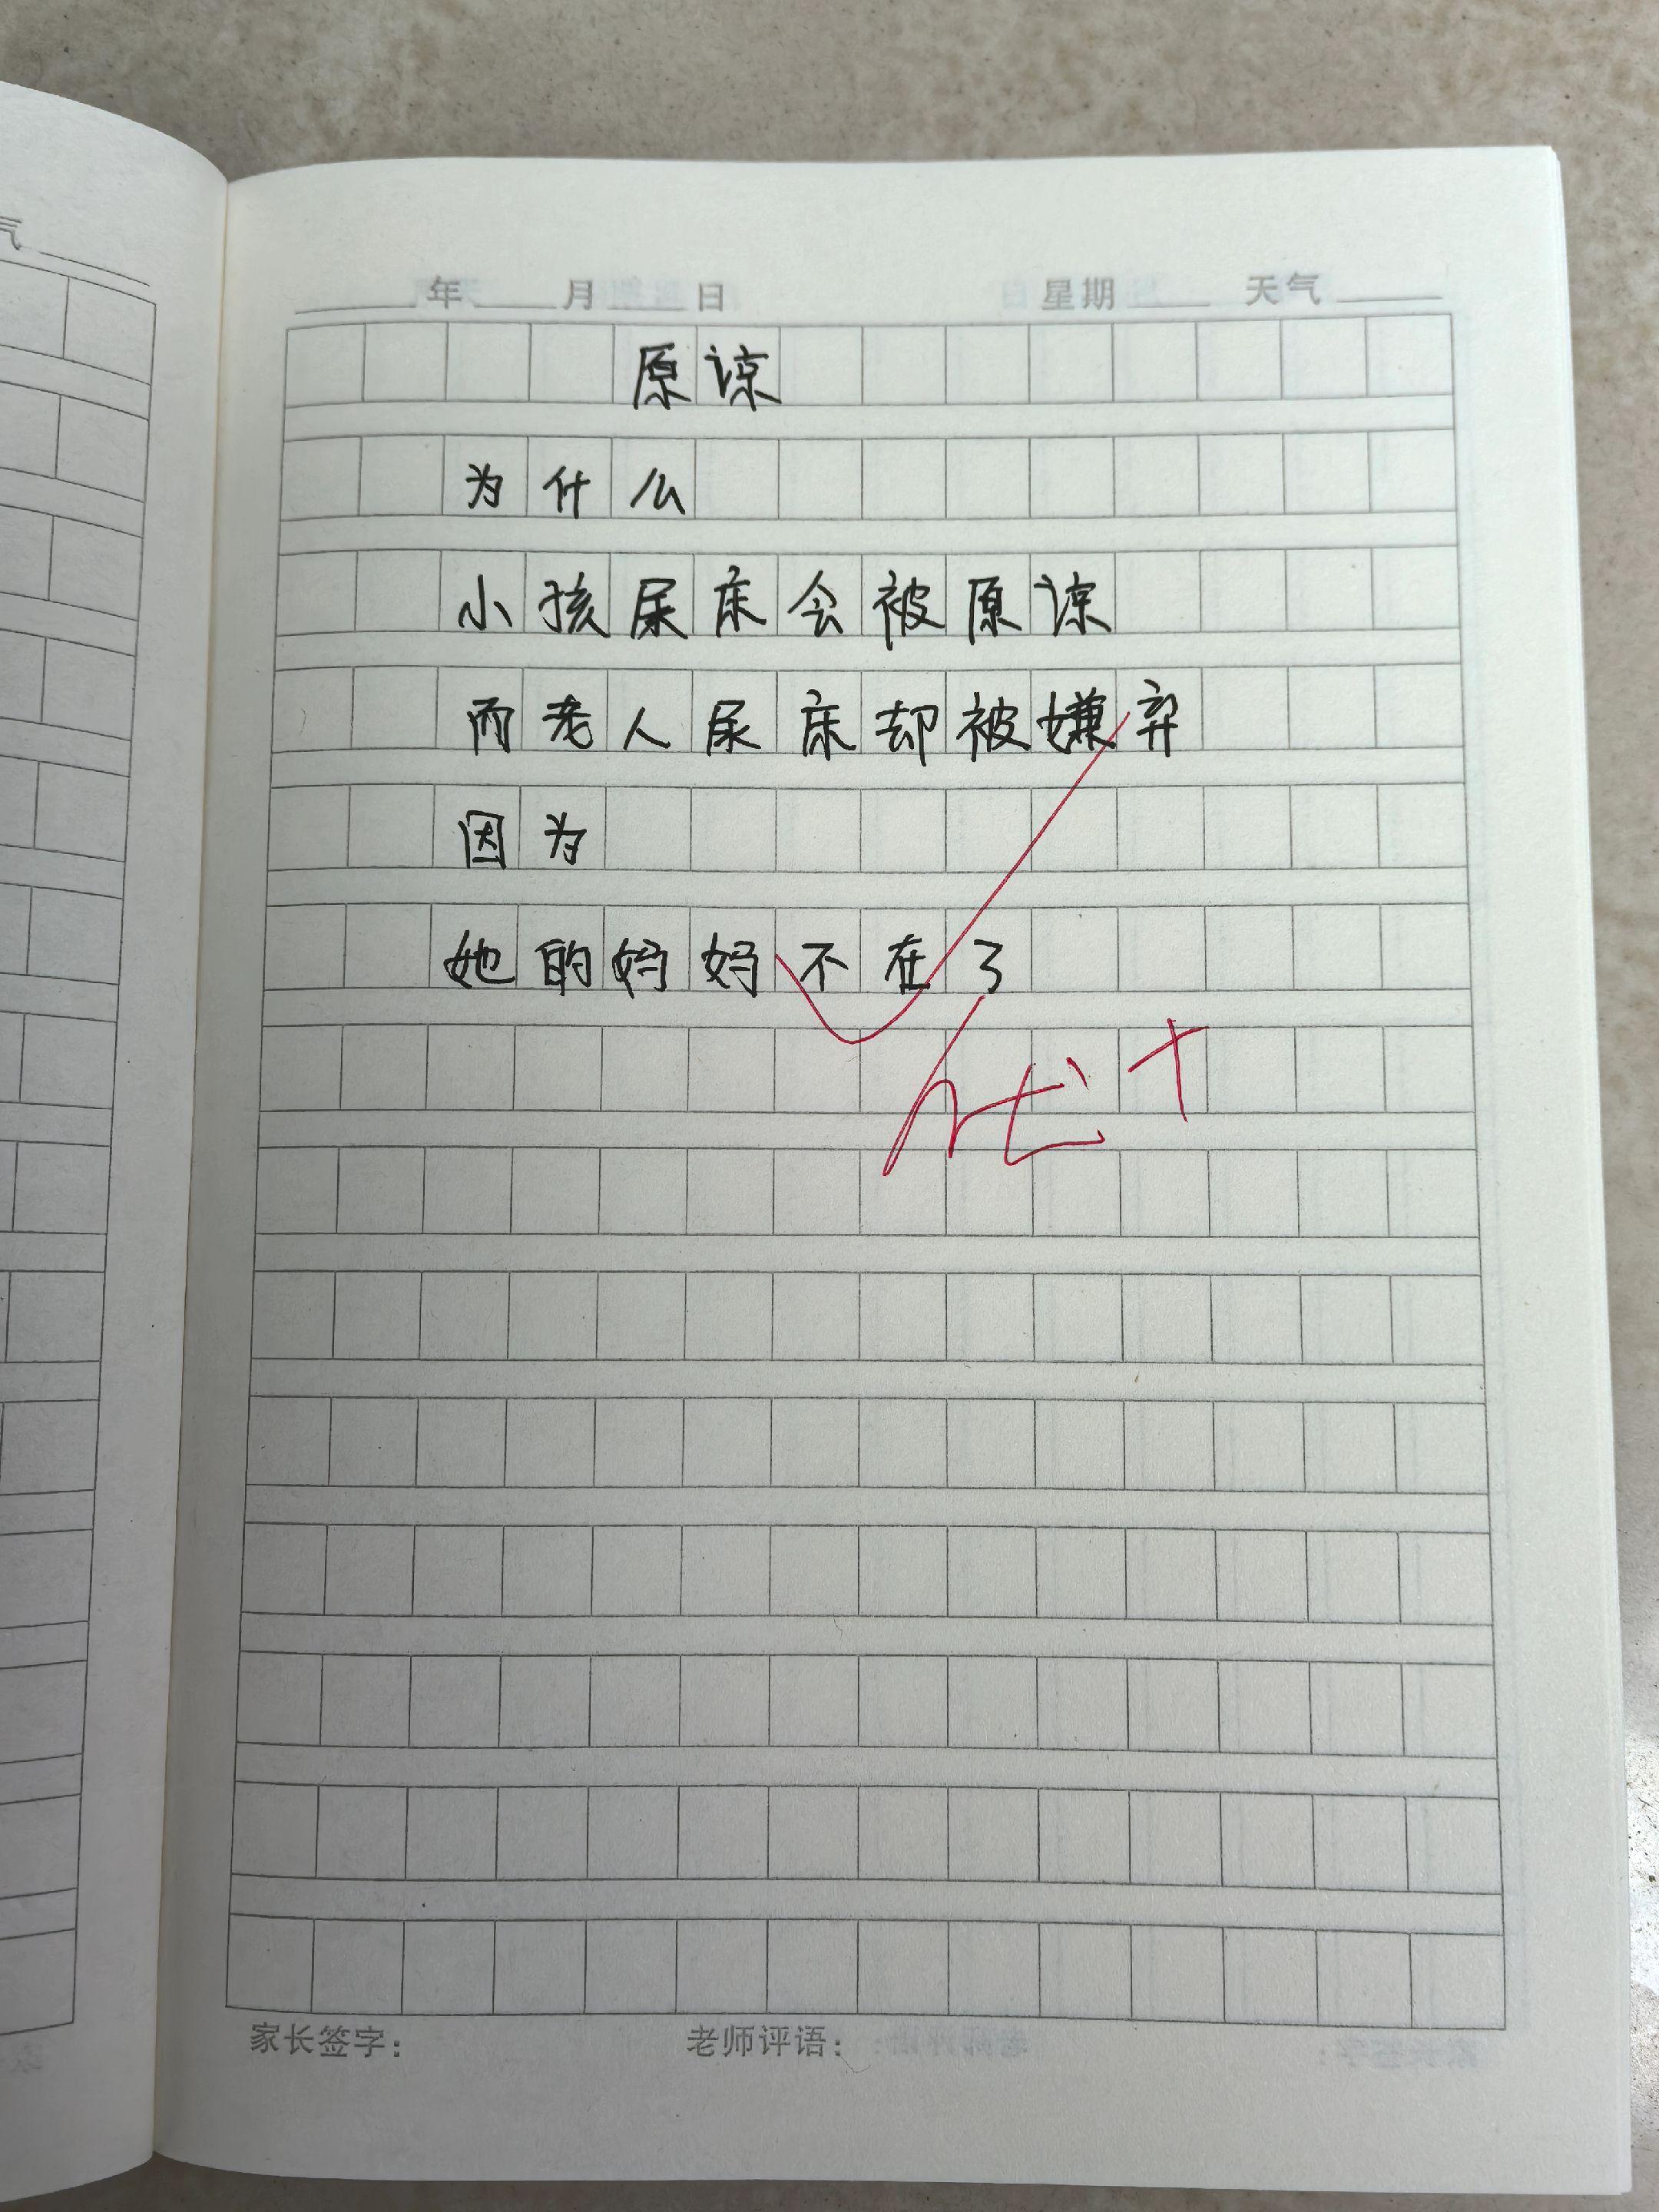 气
年 月 日 星期 天气
原谅
为什么
小孩尿床会被原谅
而老人尿床却被嫌弃
因为
她的妈妈不在了
优+
家长签字： 老师评语：